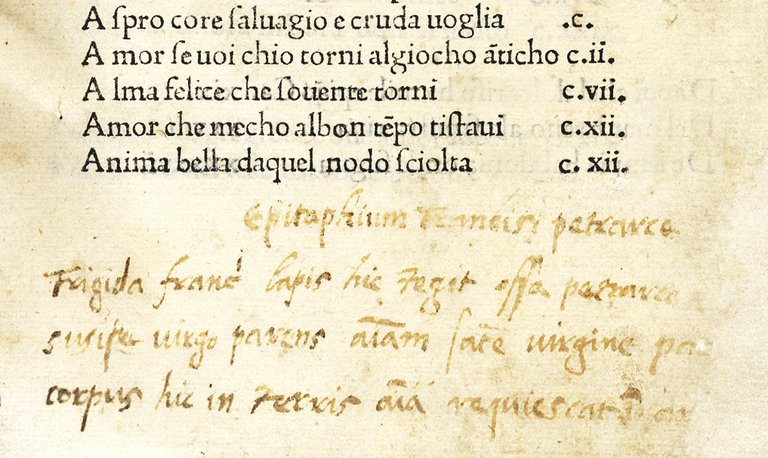 A ſpro core ſaluagio e cruda uoglia .c.
A mor ſe uoi chio torni algiocho ãticho c.ii.
A lma felice che ſouente torni c.vii.
Amor che mecho albon tẽpo tiſtaui c.xii.
Anima bella daquel nodo ſciolta c. xii.
Epitaphium Francisi petrarce
Frigida franc lapis hic tegit oſſa petrarce
suscipe virgo parens aīam sate virgine
corpus hic in terris requiescat